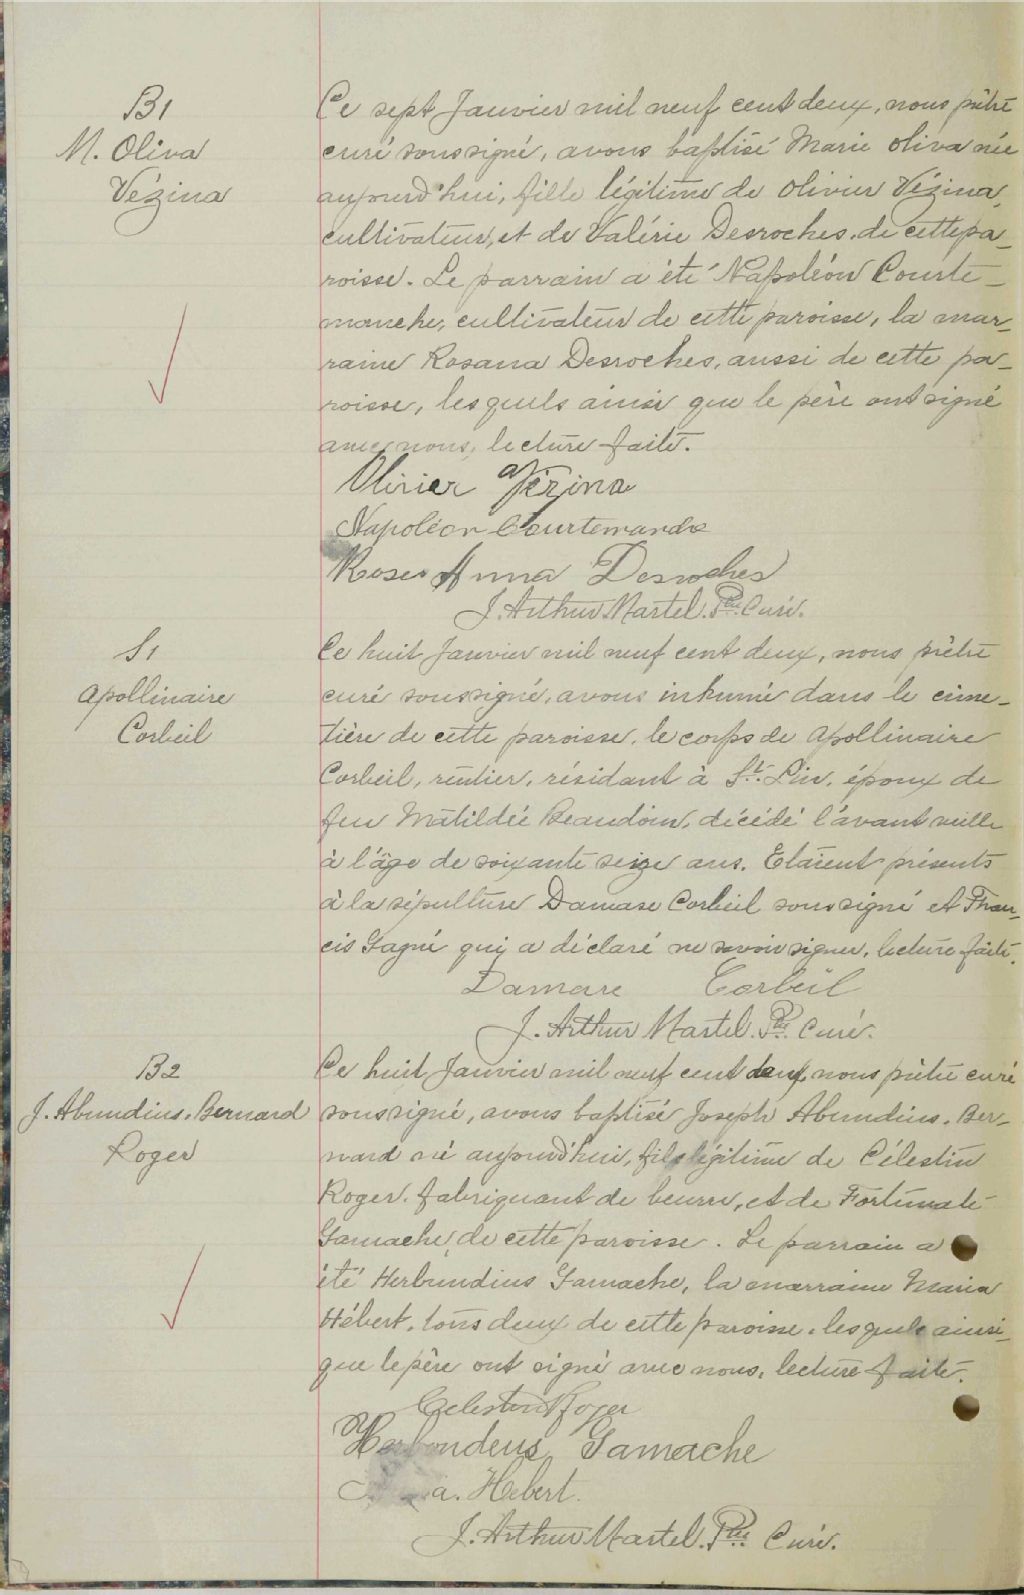 B1
M. Oliva
Vézina
Ce sept Janvier mil neuf cent deux, nous prêtre
curé soussigné, avons baptisé Marie Oliva née
aujourd'hui, fille légitime de Olivier Vézina,
cultivateur, et de Valérie Desroches, de cette pa-
roisse. Le parrain a été Napoléon Courte-
manche, cultivateur de cette paroisse, la mar-
raine Rosana Desroches, aussi de cette pa-
roisse, lesquels ainsi que le père ont signé
avec nous, lecture faite.
Olivier Vézina
Napoléon Courtemanche
Rose Anna Desroches
J. Arthur Martel. Ptre Curé.
S1
Apollinaire
Corbeil
Ce huit Janvier mil neuf cent deux, nous prêtre
curé soussigné, avons inhumé dans le cime-
tière de cette paroisse, le corps de Apollinaire
Corbeil, rentier, résidant à St. Lin, époux de
feu Matildée Beaudoin, décédé l'avant veille
à l'âge de soixante seize ans. Etaient présents
à la sépulture Damase Corbeil soussigné et Fran-
cis Gagné qui a déclaré ne savoir signer, lecture faite.
Damase Corbeil
J. Arthur Martel. Ptre Curé.
B2
J. Abundius. Bernard
Roger
Ce huit Janvier mil neuf cent deux, nous prêtre curé
soussigné, avons baptisé Joseph Abundius. Ber-
nard né aujourd'hui, fils légitime de Célestin
Roger, fabriquant de beurre, et de Fortunate
Gamache, de cette paroisse. Le parrain a
été Herbundius Gamache, la marraine Maria
Hébert, tous deux de cette paroisse, lesquels ainsi
que le père ont signé avec nous, lecture faite.
Celestin Roger
Herbondeus Gamache
a. Hebert.
J. Arthur Martel. Ptre Curé.